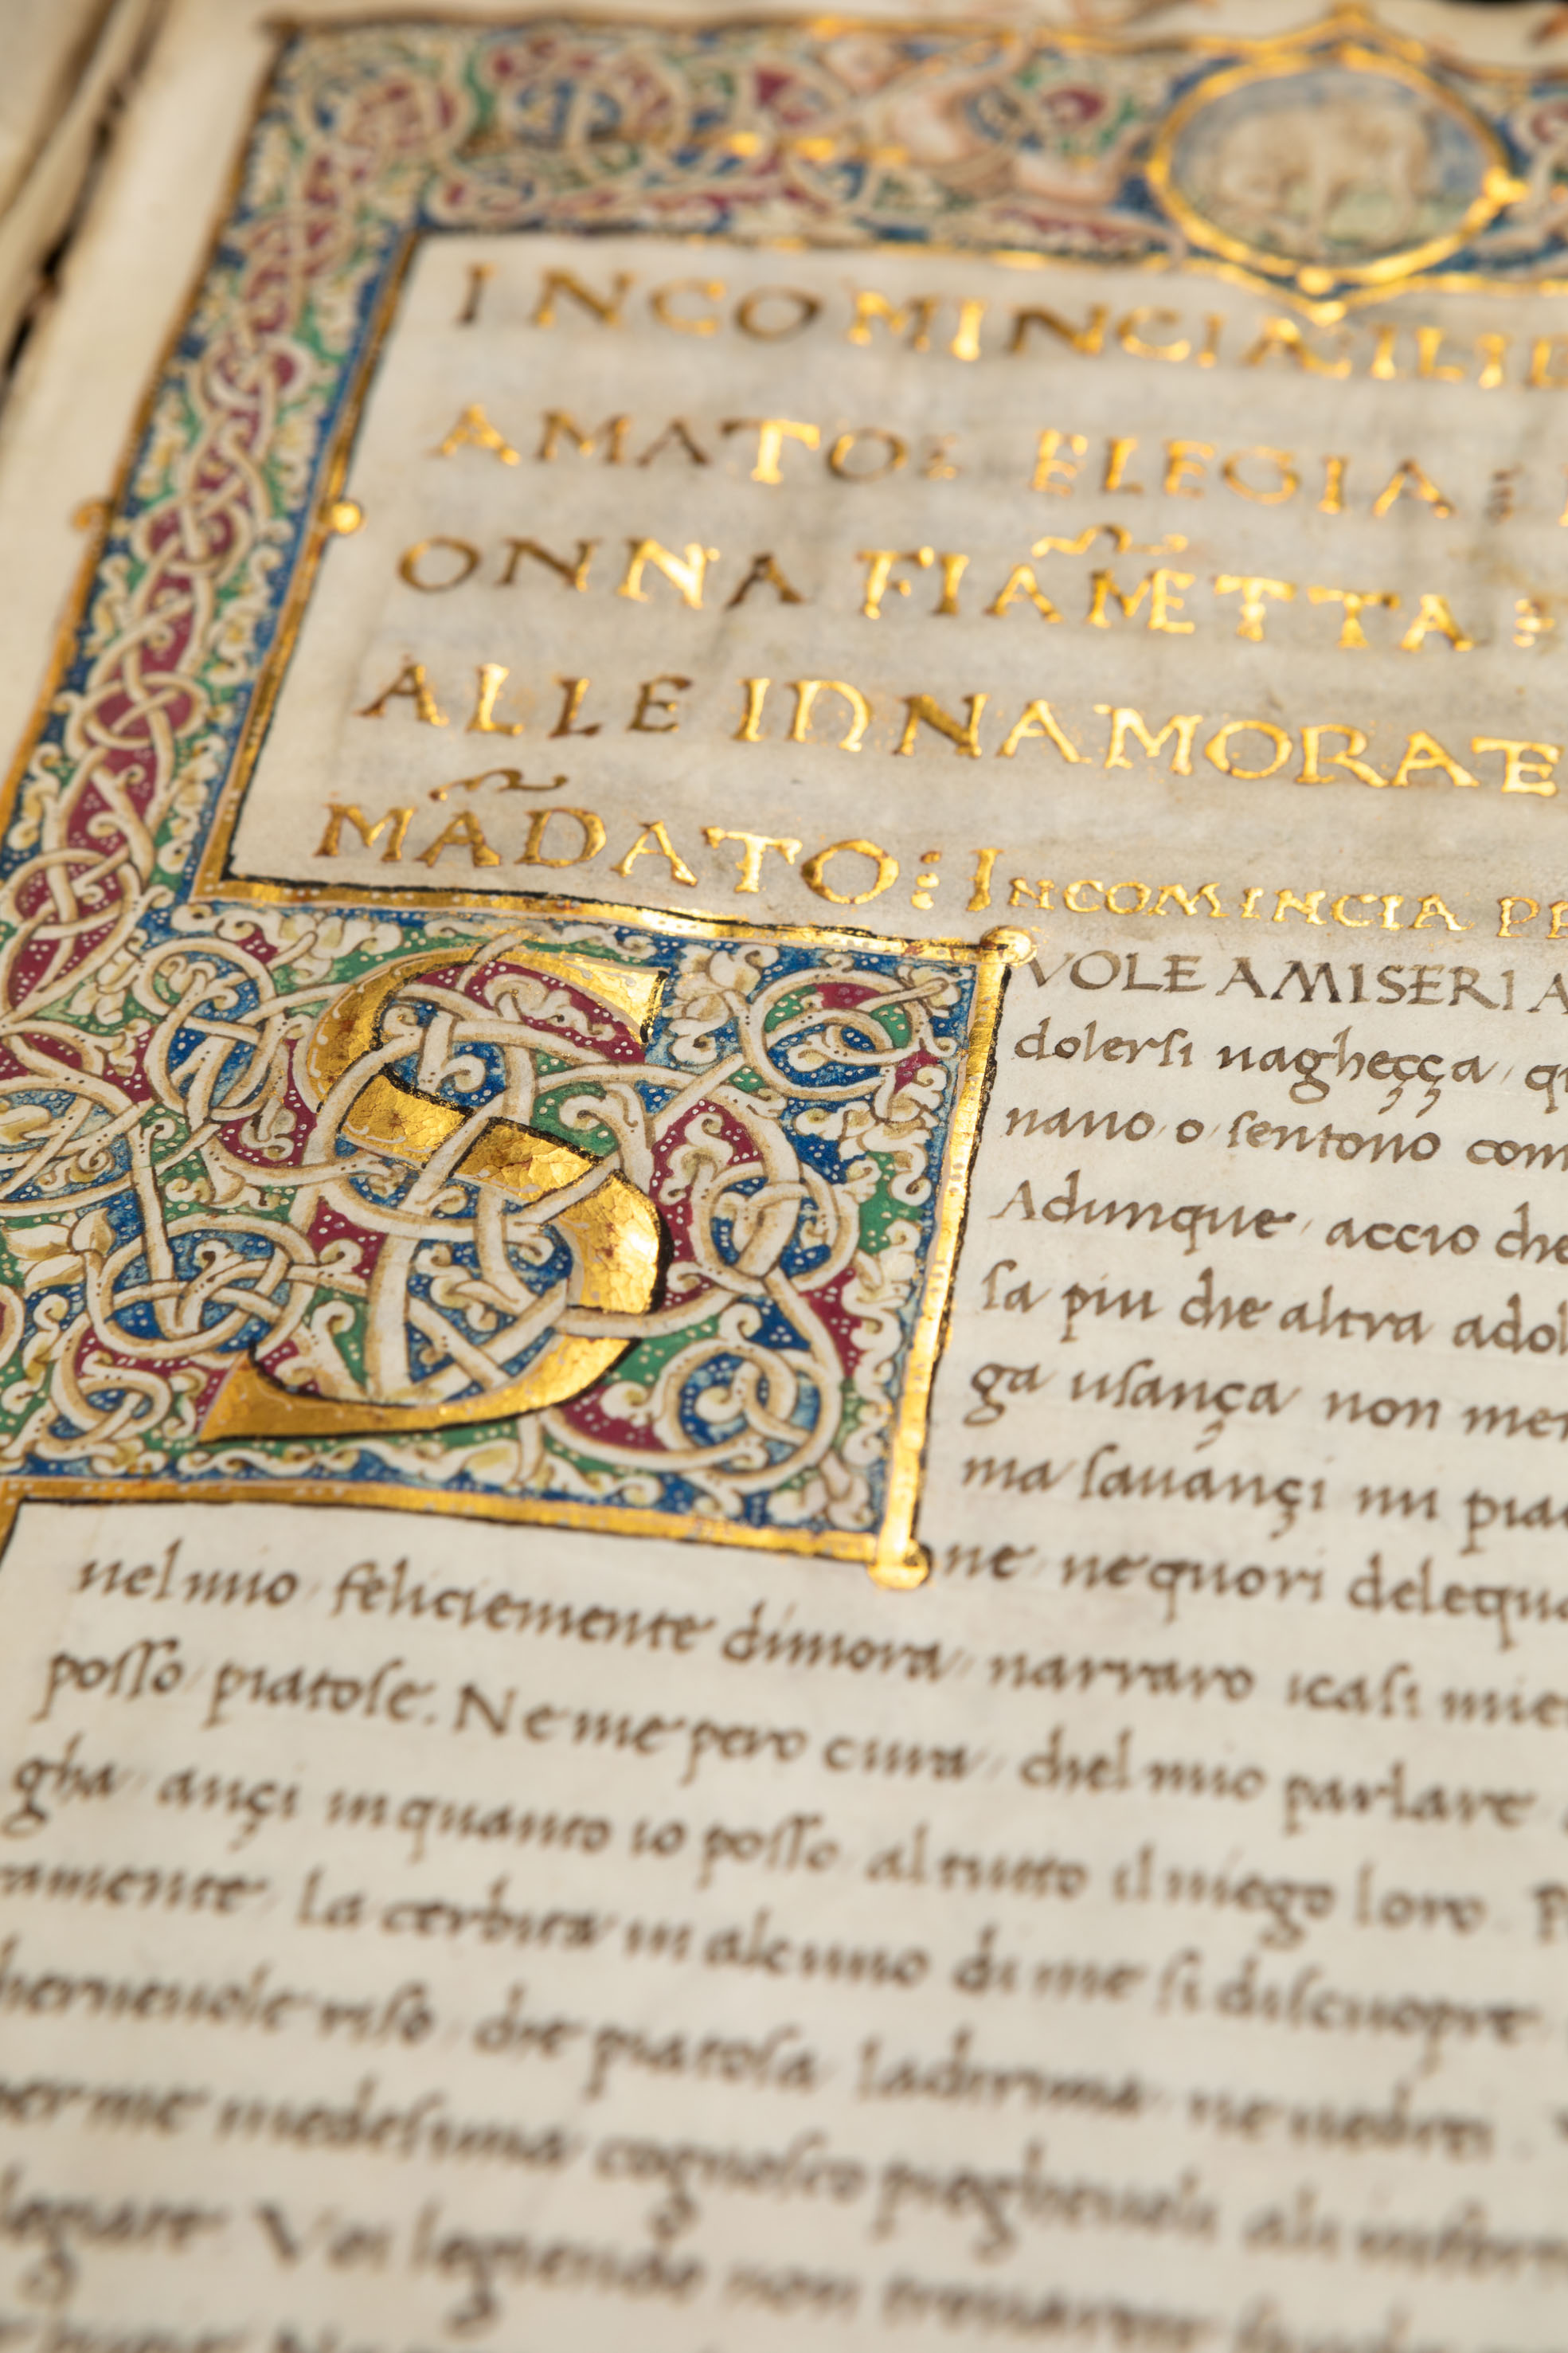 INCOMINCIA IL LI
AMATO: ELEGIA:
ONNA FIAM̃ETTA:
ALLE INNAMORATE
MÃDATO: INCOMINCIA PR
SVOLE A MISERI A
dolerſi uagheçça, q
nano, o, ſentono com
Adunque, accio che
ſa piu che altra adol
ga uſança non me
ma ſauançi mi piac
ne, ne quori delequa
nel mio, feliciemente dimora, narraro icaſi mie
poſſo, piatoſe. Ne me pero cura, chel mio parlare
gha, ançi inquanto io poſſo, al tutto il niego loro.
ramente, la cerbita in alcuno di me ſi diſcuopre
cherneuole riſo, che piatoſa lachrima, ne uedrei.
per me medeſima cognoſco piegheuoli ali infor
legiare. Voi legiendo non trouarete